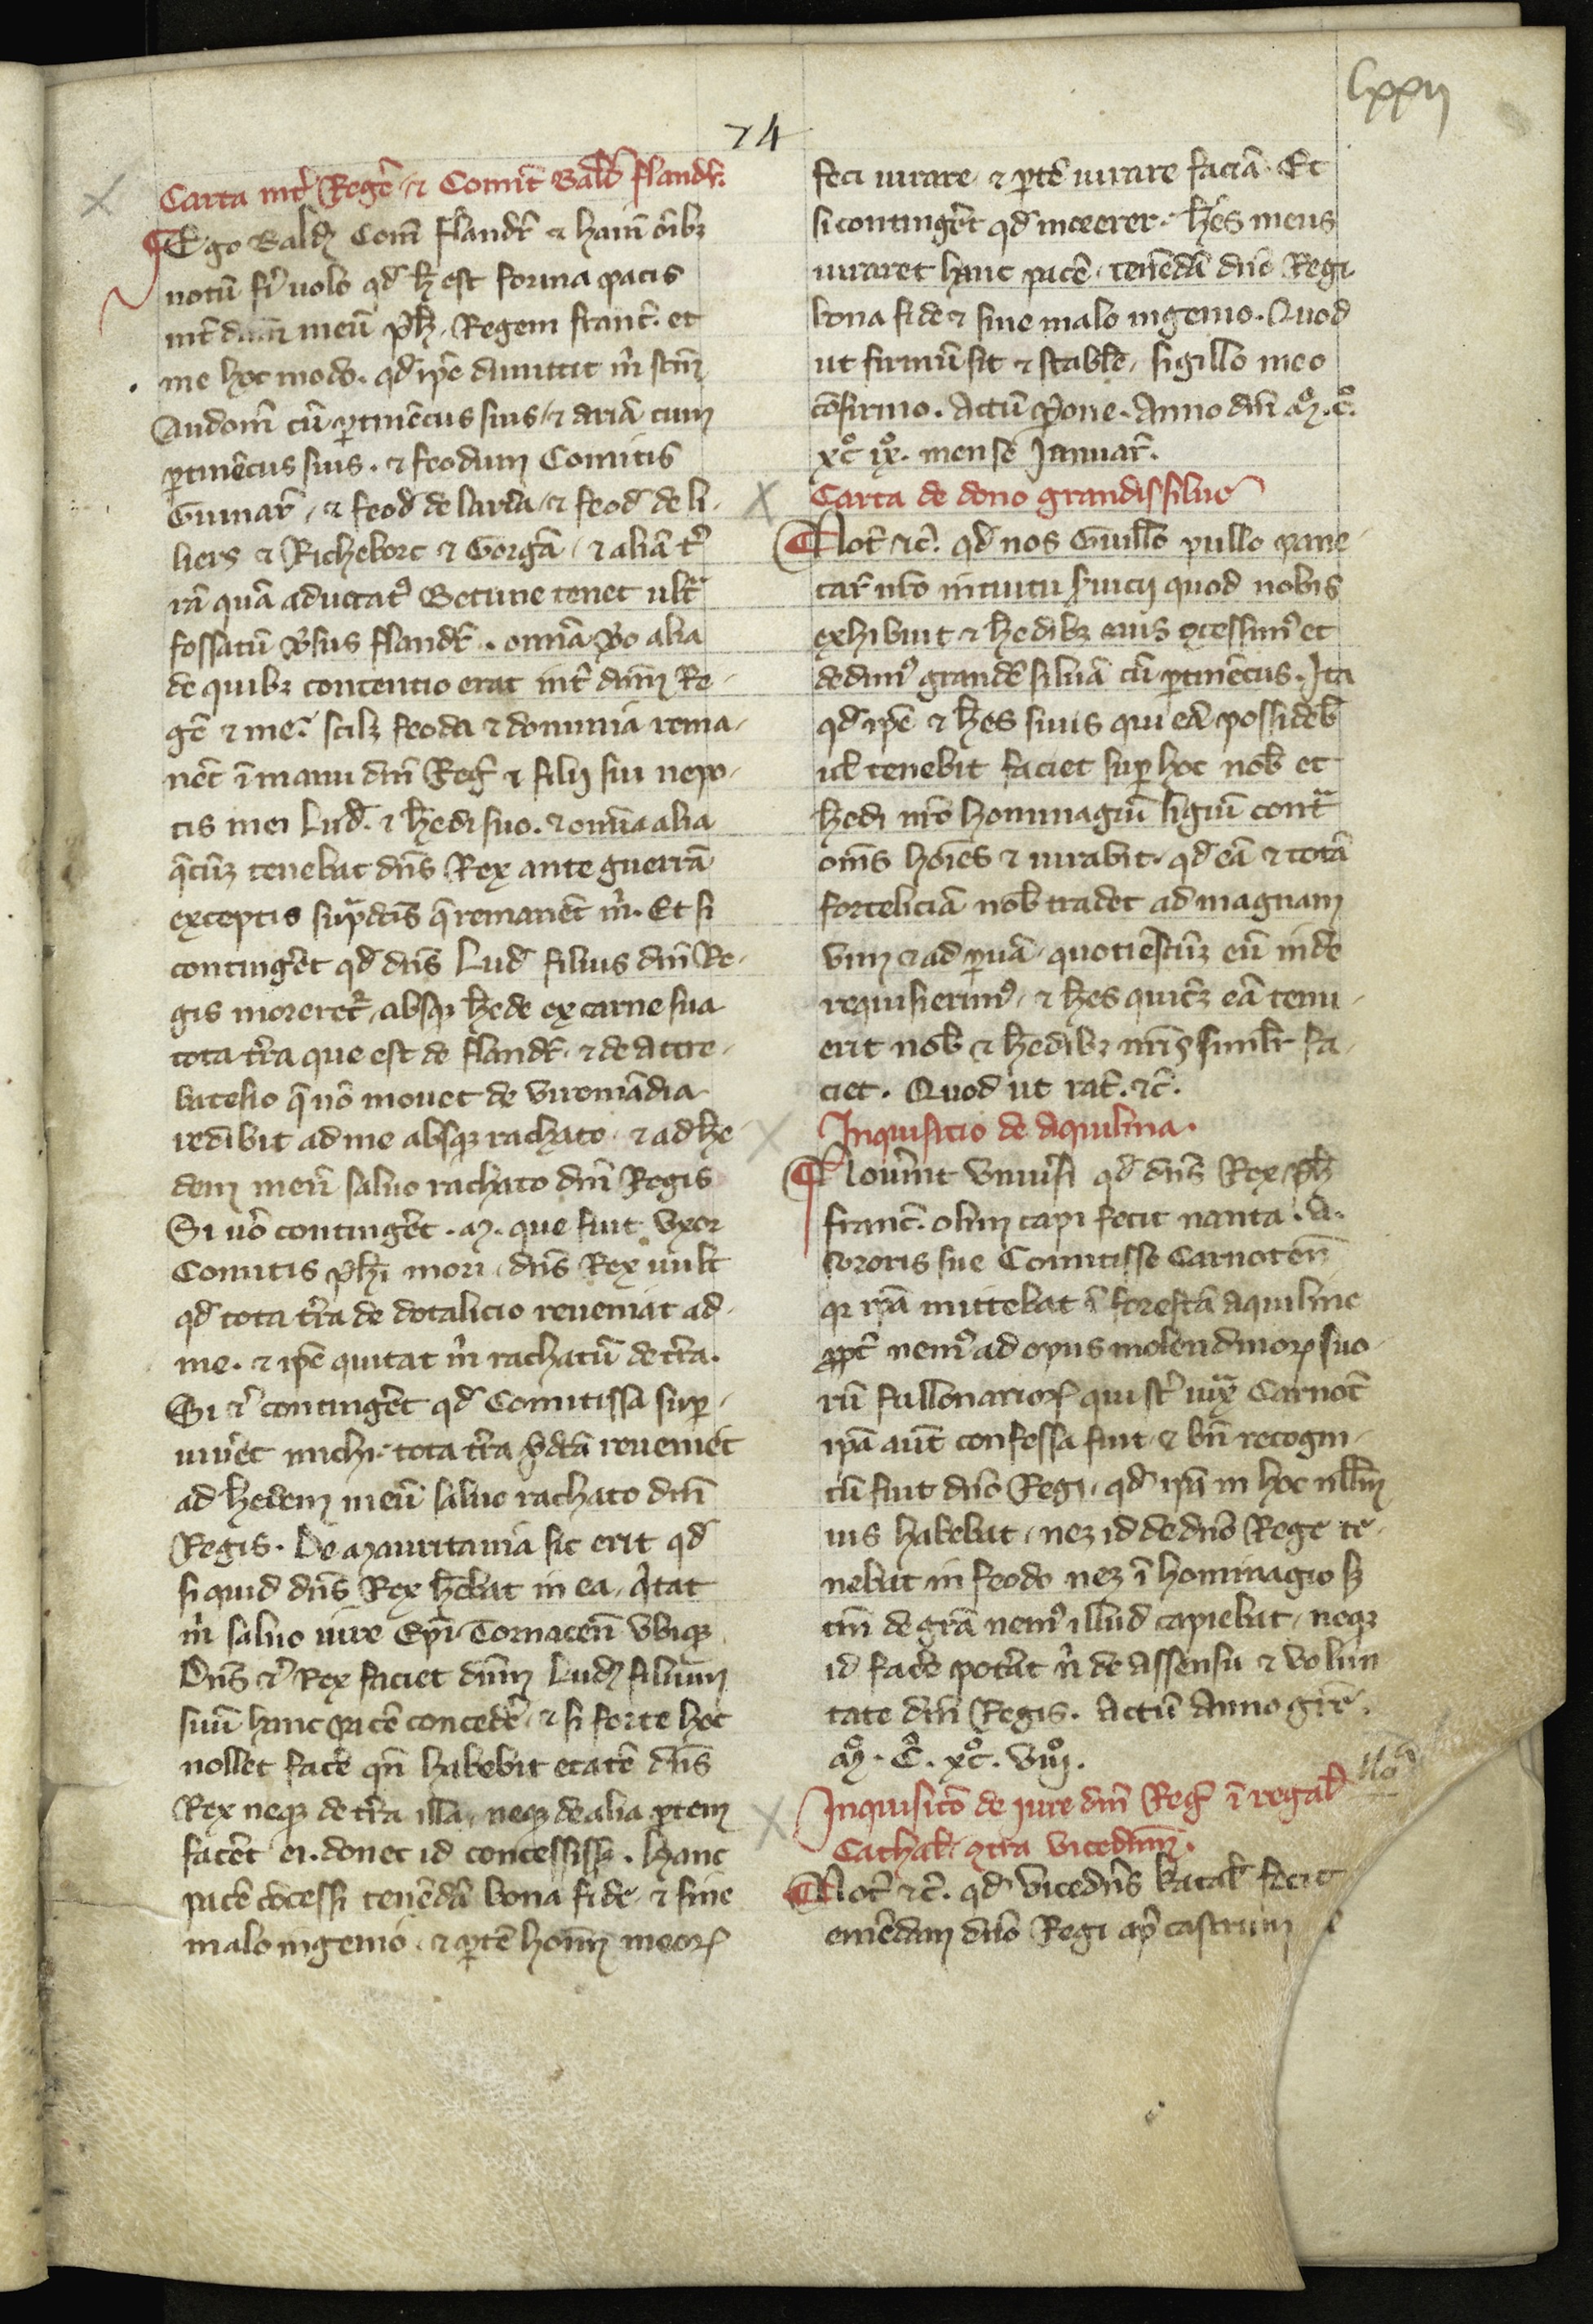 lxxii
74
Carta int̃ Regẽ & Comit̃ Bald̃ flandr̃.
Ego Bald̃ Com̃ flandr̃ & hain̄ om̃ibꝫ
notũ fi̾ uolo qđ h̃ est forma pacis
int̃ dñm meũ ph̃. Regem franc̃. et
me hoc modo. qđ ip̃e dimittit m̃ sc̃m
Audom̃ cũ ꝑtinẽciis suis, & ariã cum
ꝑtinẽciis suis. & feodum Comitis
Guinar̃, & feod̃ de lar̃ra, & feod̃ de li
liers & Richeborc & Gorgã, & aliã t̾
rã quã aduocatꝰ Betunie tenet ult̃
fossatũ ũsus flandr̃. omnia ũo alia
de quibꝫ contentio erat int̃ dñm Re
gẽ & me. scilꝫ feoda & dominia rema
nẽt ĩ manu dñi Reg̃ & filii sui nepo
tis mei Lud̃. & h̃edi suo. & omnia alia
q̃cũqꝫ tenebat dñs Rex ante guerrã
exceptis sup̃dc̃is q̃ remanẽt m̃. Et si
conting̾et qđ dñs Lud̃ filius dñi Re
gis morer̃et̃ absqꝫ h̃ede ex carne sua
tota t̾ra que est de flandr̃. & de attre
batesio q̃ nõ mouet de viromãdia
redibit ad me absqꝫ rachato & ad h̃e
dem meũ saluo rachato dñi Regis
Si ũo conting̾et .M. que fuit vxor
Comitis ph̃i mori, dñs Rex uult
qđ tota t̾ra de dotalicio reueniat ad
me. & ip̃e quitat m̃ rachatũ de t̾ra.
Si & conting̾et qđ Comitissa suꝑ
uiũet michi. tota t̾ra p̃dc̃a reueniet
ad h̃edem meũ saluo rachato dñi
Regis. De Mauritania sic erit qđ
si quid dñs Rex h̃ebat in ea, q̃tat
m̃ saluo iure Ep̃i Tornacen̄ vbiqꝫ
Dñs & Rex faciet dñm Lud̃ filium
suũ hanc pacẽ conced̃e, & si forte hoc
nollet fac̃e qñ habebit etatẽ dñs
Rex neqꝫ de t̾ra illa, neqꝫ de alia ꝑtem
facet ei. donec id concessisꝫ. hanc
pacẽ cõcessi tenẽdã bona fide & sine
malo ingenio. & ꝑtẽ hoĩm meoꝝ
feci iurare & ꝑtẽ iurare faciã. Et
si conting̾et qđ incerer. h̃es meus
iuraret hanc pacẽ. tenẽdã dñe Regi
bona fide & sine malo ingenio. Quod
ut firmũ sit & stabile, sigillo meo
cõfirmo. Actũ ꝑone. Anno dñi Mº. Cº.
xcº ixº. mense Januar̃.
Carta de dono grandissilue
Not̃ &c̃. qđ nos Guill̃o pullo pane
tar̃ nr̃o intuitu s̃uicii quod nobis
exhibuit & h̃edibꝫ eius ꝯcessimꝰ et
dedimꝰ grandẽ siluã cũ ꝑtinẽciis. Ita
qđ ip̃e & h̃es suus qui eã possideb̃
ul̃ tenebit faciet suꝑ hoc nob̃ et
h̃edi nr̃o hommagiũ ligiũ cont̃
om̃s hoĩes & iurabit. qđ eã & totã
forteliciã nob̃ tradet ad magnam
vim & ad ꝑuã. quotiẽscũqꝫ eũ inde
requisierimꝰ, & h̃es quicũqꝫ eã tenu
erit nob̃ & h̃edibꝫ nr̃is simil̃r fa
ciet. Quod ut rat̃. &c̃.
Inquisitio de Aquilina.
Nouẽint vniũsi qđ dñs Rex ph̃
franc̃. olim capi fecit nanta .A.
sororis sue Comitisse Carnoten̄
qꝛ ip̃a mittebat ĩ forestã Aquiline
ꝓpt̃ nemꝰ ad opus molendinoꝝ suo
rũ fullonarioꝝ qui st̃ iuxͣ Carnot̃
ip̃a aut̃ confessa fuit, & bñ recogni
tũ fuit dño Regi, qđ ip̃a in hoc null̃m
ius habebat, neꝫ id de dño Rege te
nebat in feodo neꝫ ĩ hominagio sꝫ
tm̃ de grã nemꝰ illud capiebat, neqꝫ
id fac̃e potãt n̾ de assensu & volun
tate dñi Regis. Actũ Anno gr̃e.
Mº. Cº. xcº. viijº.
Inquisitõ de iure dñi Reg̃ ĩ regal̃
Cathal̃. ꝯtra vicedñm.
Not̃ &c̃. qđ vicedñs katal̃ fecit
emẽdam dño Regi ap̃ castrum